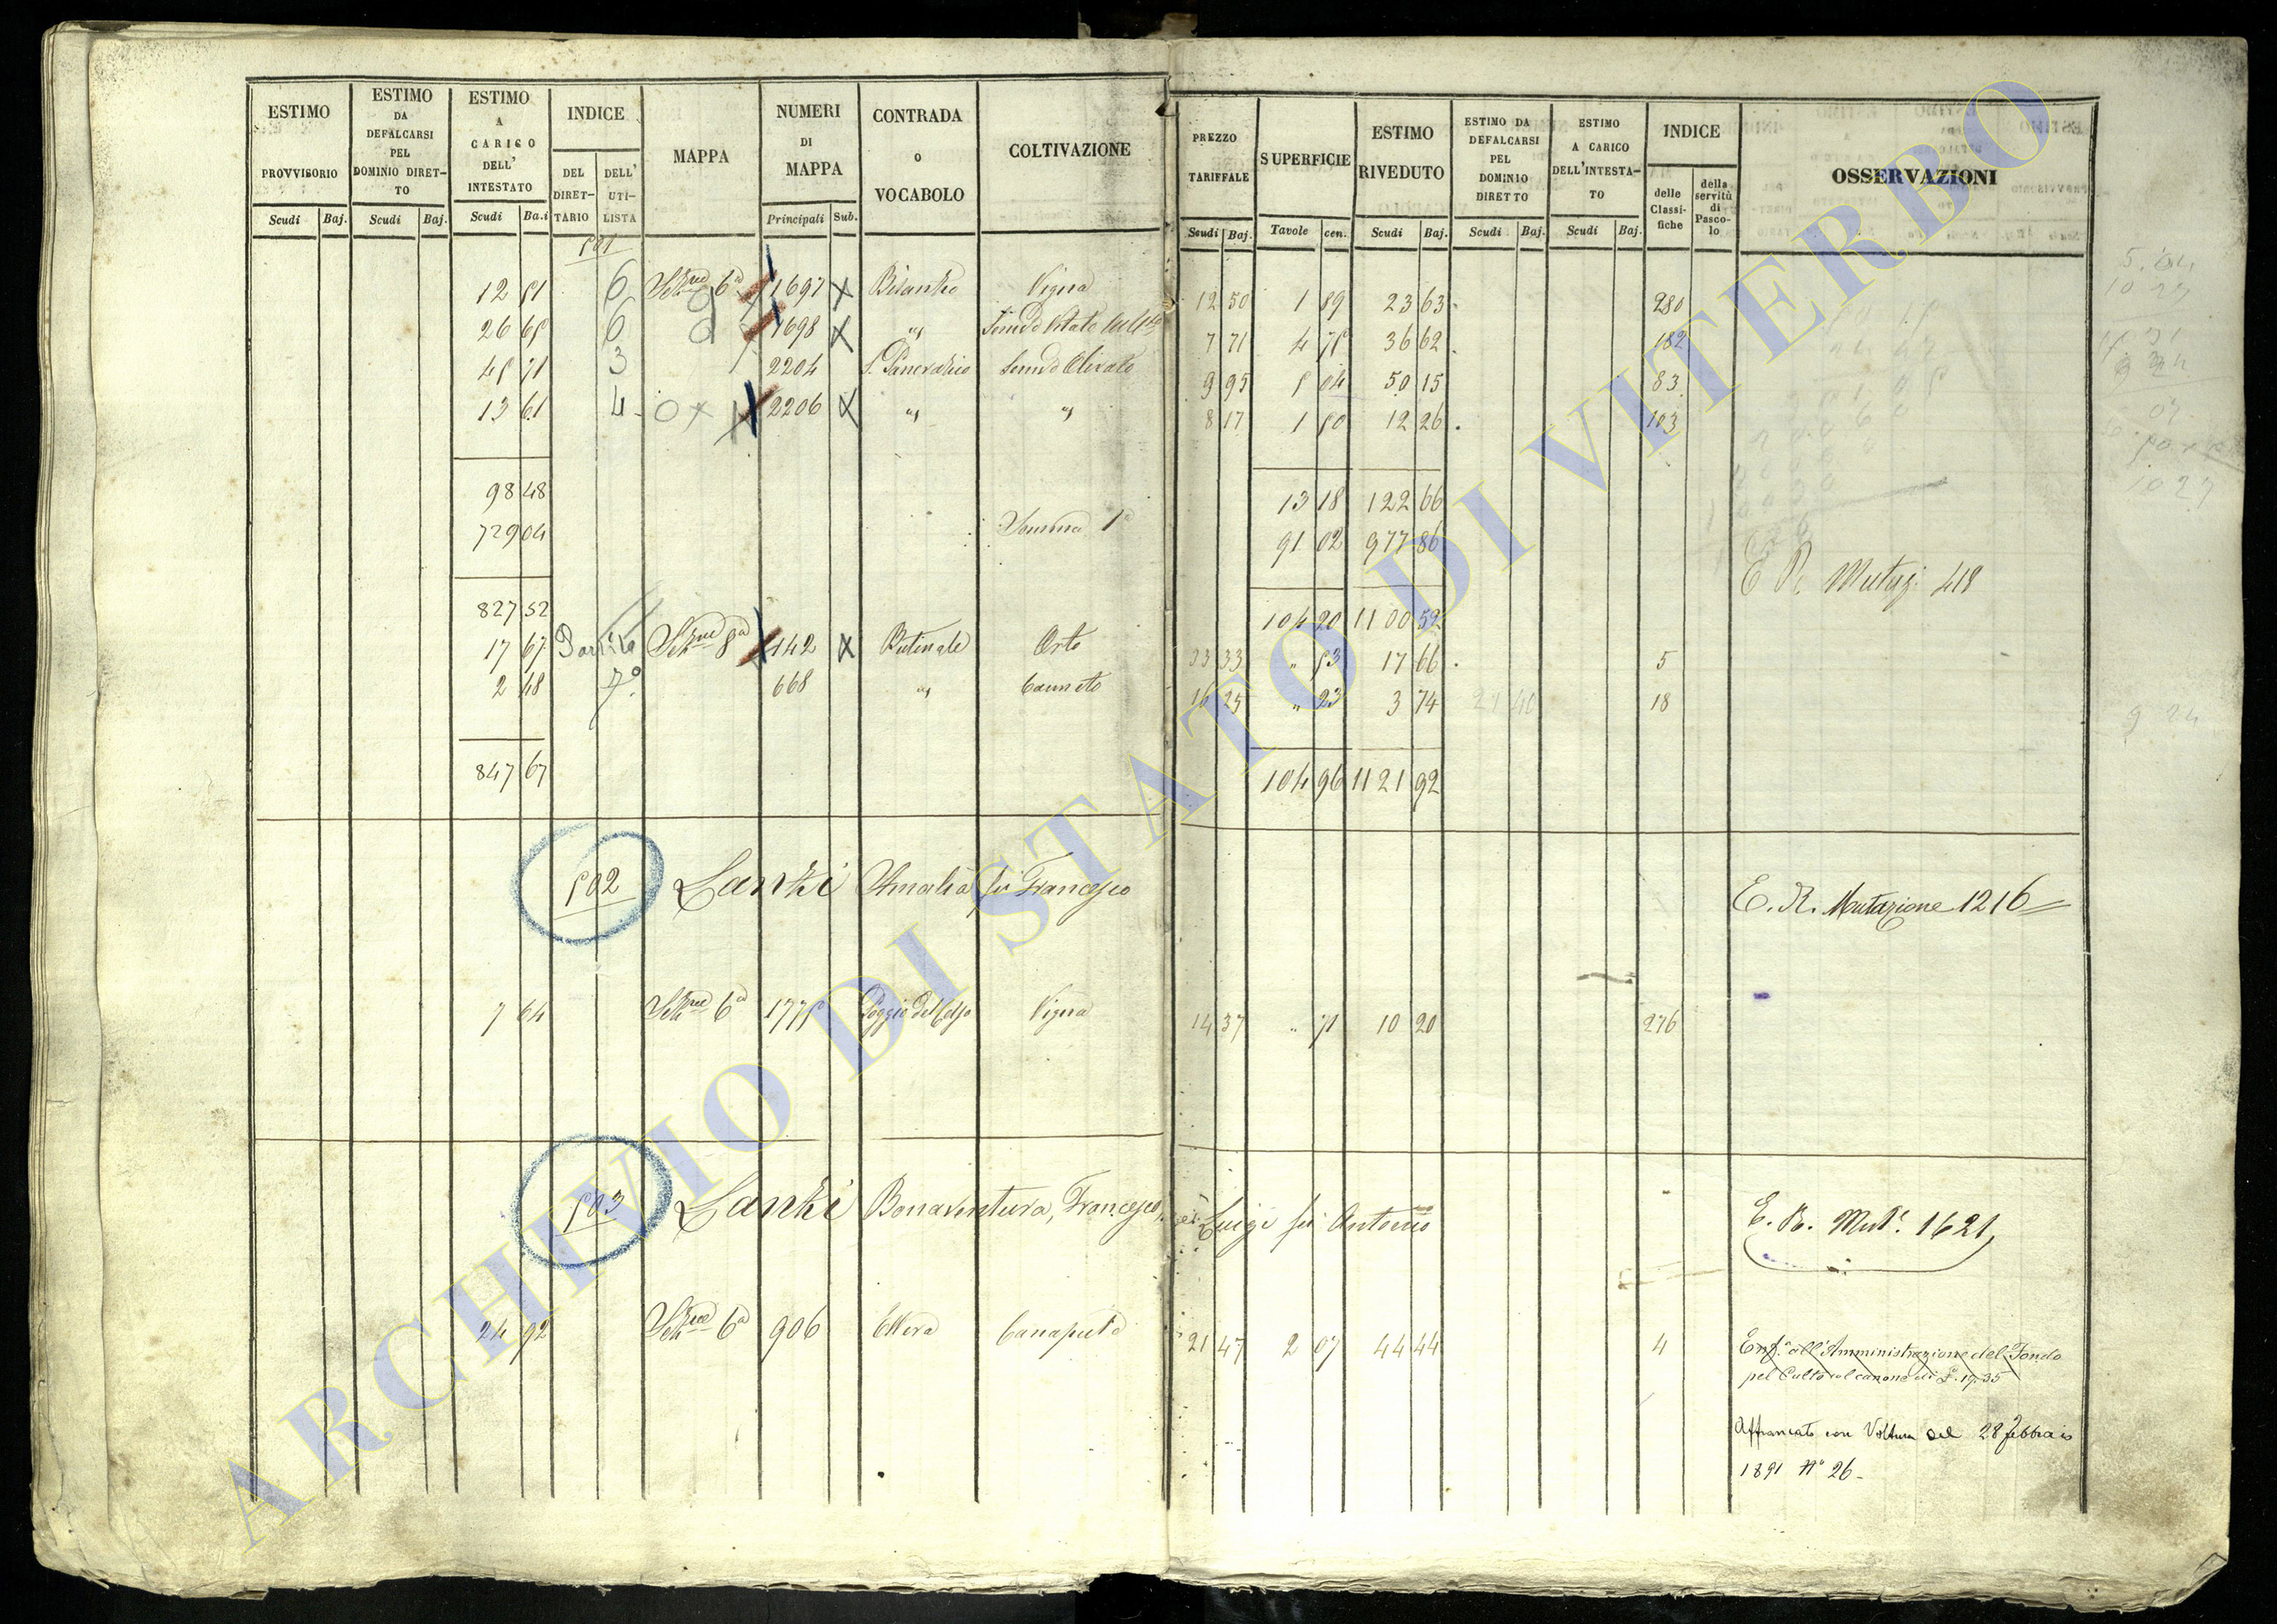 ESTIMO PROVVISORIO
ESTIMO DA DEFALCARSI PEL DOMINIO DIRETTO
ESTIMO A CARICO DELL' INTESTATO
INDICE
DEL DIRETTARIO
DELL' UTILISTA
MAPPA
NUMERI DI MAPPA
CONTRADA O VOCABOLO
COLTIVAZIONE
PREZZO TARIFFALE
SUPERFICIE
ESTIMO RIVEDUTO
ESTIMO DA DEFALCARSI PEL DOMINIO DIRETTO
ESTIMO A CARICO DELL'INTESTATO
INDICE
delle Classifiche
della servitù di Pascolo
OSSERVAZIONI
Scudi Baj. Scudi Baj. Scudi Ba.i Principali Sub. Scudi Baj. Tavole cen. Scudi Baj. Scudi Baj. Scudi Baj.
501
12 51 6 6a 1697 x Vigna 12 50 1 89 23 63 280
26 65 6 1698 x " 7 71 4 75 36 62 182
45 71 3 2204 S. Pancrazio Olivato 9 95 5 04 50 15 83
13 61 4 2206 x " " 8 17 1 50 12 26 103
98 48 13 18 122 66
729 04 Somma 1a 91 02 977 86
E R Mutaz. 418
827 52 104 20 1100 52
17 67 Partita 8a 142 x Orto 33 33 " 53 17 66 5
2 48 7° 668 " Canneto 16 25 " 23 3 74 21 40 18
847 67 104 96 1121 92
502 Lanzi Amalia fu Francesco E. R. Mutazione 1216
7 64 6a 1775 Poggio del Celso Vigna 14 37 " 71 10 20 276
503 Lanzi Bonaventura, Francesco, e Luigi fu Antonio E. R. Mut. 1621
24 92 6a 906 Ellera 21 47 2 07 44 44 4
Enf. all'Amministrazione del Fondo
pel Culto col canone di £. 19.35
Affrancato con Voltura del 28 febbraio
1891 N° 26
ARCHIVIO DI STATO DI VITERBO